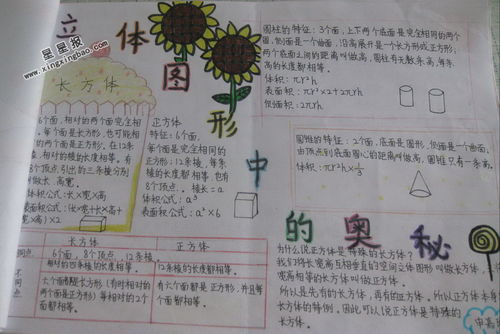 立体图形中的奥秘
星星报
www.xingxingbao.com
长方体
6个面,相对的两个面完全相
每个面是长方形,也可能相
的两个面是正方形。在12条
棱,相对的棱的长度相等。有
8个顶点,引出的三条棱分别
叫做长、高宽。
体积公式:长×宽×高
表面积公式:(长×宽+长×高+
宽×高)×2
正方体
特征:6个面,
每个面是完全相同的
正方形;12条棱,每条
棱的长度都相等,也有
8个顶点。棱长=a
体积公式:a³
表面积公式:a²×6
圆柱的特征:3个面,上下两个底面是完全相同的两个
圆,侧面是一个曲面,沿高展开是一个长方形或正方形;
两个底面之间的距离叫做高,圆柱有无数条高,每条
高的长度都相等。
体积:πr²h
表面积:πr²×2+2πrh
侧面积:2πrh
圆锥的特征:2个面,底面是圆形,侧面是一个曲面,
由顶点到底面圆心的距离叫做高,圆锥只有一条高。
体积:πr²h×1/3
长方体 正方体
相同点 6个面,8个顶点,12条棱。
不同点 相对的四条棱的长度相等。 12条棱的长度都相等。
六个面都是长方形(有时相对的
两个面是正方形)每相对的2个
面都相等。
有六个面都是正方形,并且每
个面都相等。
为什么说正方体是特殊的长方体?
我们将长宽高互相垂直的空间立体图形叫做长方体,
宽高相等的长方体叫做正方体。
所以是先有的长方体,再有的正方体。所以正方体
长方体的特例。因此可以说正方体是特殊的
长方体。